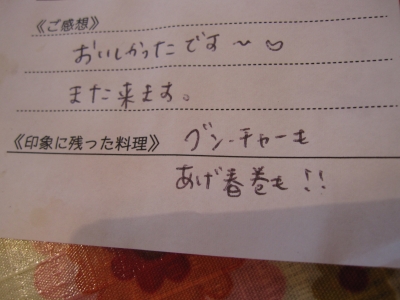 《ご感想》
おいしかったです〜♡
また来ます。
《印象に残った料理》 ブン・チャーも
あげ春巻も!!